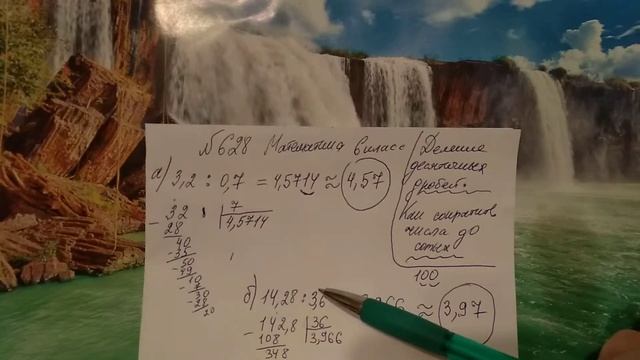 №628 Математика 6 класс
а) 3,2 : 0,7 = 4,5714 ≈ 4,57
- 32 | 7
28 4,5714
40
-35
50
-49
10
-7
30
-28
20
Деление
десятичных
дробей.
Как сократить
числа до
сотых
100
б) 14,28 : 3,6 3,966 ≈ 3,97
- 142,8 | 36
108 3,966
348